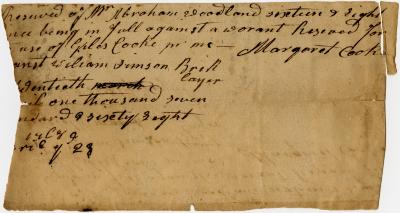 Received of Mr Abraham Woodland sixteen & Eight
nce being in full against a warant Received for
use of Giles Cooke pr me — Margaret Cook
William Simson Brick
layer
wentieth march
il one thousand seven
undard & sixty Eight
y 23